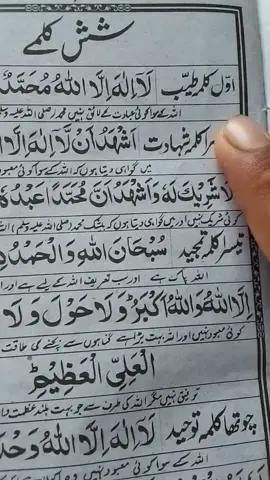 شش کلمے
اوّل کلمہ طیّب لَآ اِلٰهَ اِلَّا اللّٰهُ مُحَمَّدٌ
اللہ کے سوا کوئی عبادت کے لائق نہیں محمد صلی اللہ علیہ وسلم
کلمہ شہادت اَشْهَدُ اَنْ لَّآ اِلٰهَ اِلَّا
میں گواہی دیتا ہوں کہ اللہ کے سوا کوئی
لَا شَرِيْكَ لَهٗ وَاَشْهَدُ اَنَّ مُحَمَّدًا عَبْدُهٗ
کوئی شریک نہیں اور میں گواہی دیتا ہوں کہ بیشک محمد صلی اللہ علیہ
تیسرا کلمہ تمجید سُبْحَانَ اللّٰهِ وَالْحَمْدُ
اللہ پاک ہے اور سب تعریف اللہ کے لیے ہے اور
اِلَّا اللّٰهُ وَاللّٰهُ اَكْبَرُ وَلَا حَوْلَ وَلَا
کوئی معبود نہیں اور اللہ بہت بڑا ہے گناہوں سے بچنے کی طاقت
الْعَلِيِّ الْعَظِيْمِ
توفیق نہیں مگر اللہ کی طرف سے جو بہت بلند عظمت والا
چوتھا کلمہ توحید لَآ اِلٰهَ اِلَّا اللّٰهُ وَحْدَ
اللہ کے سوا کوئی معبود نہیں